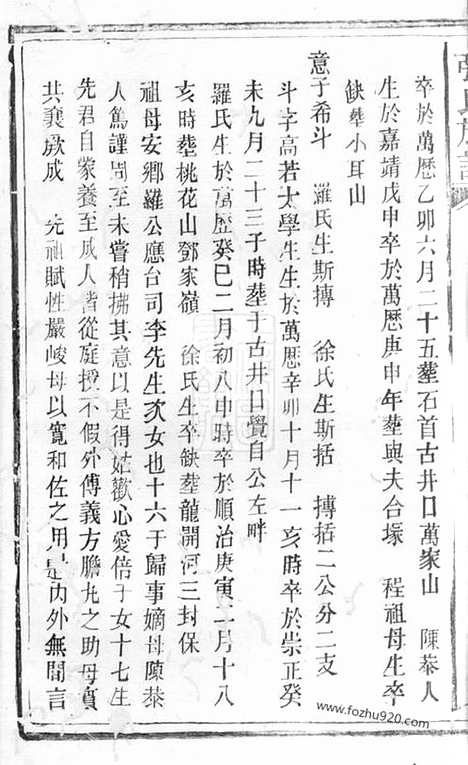 氏族譜
卒於萬歷乙卯六月二十五塟石首古井口萬家山 陳恭人
生於嘉靖戊申卒於萬歷庚申年塟與夫合塚 程祖母生卒
缺塟小耳山
意子希斗 羅氏生斯摶 徐氏生斯括 摶括二公分二支
斗字高若太學生生於萬歷辛卯十月十一亥時卒於崇正癸
未九月二十三子時塟于古井口覺自公左畔
羅氏生於萬歷癸巳二月初八申時卒於順治庚寅二月十八
亥時塟桃花山鄧家嶺 徐氏生卒缺塟龍開河三封保
祖母安鄉羅公應台司李先生次女也十六于歸事嫡母陳恭
人篤謹罔至未嘗稍拂其意以是得嬺歡心愛倍于女十七生
先君自蒙養至成人皆從庭授不假外傅義方膽丸之助母實
共襄厥成 先祖賦性嚴峻母以寬和佐之用是內外無閒言
www.fozhu920.com